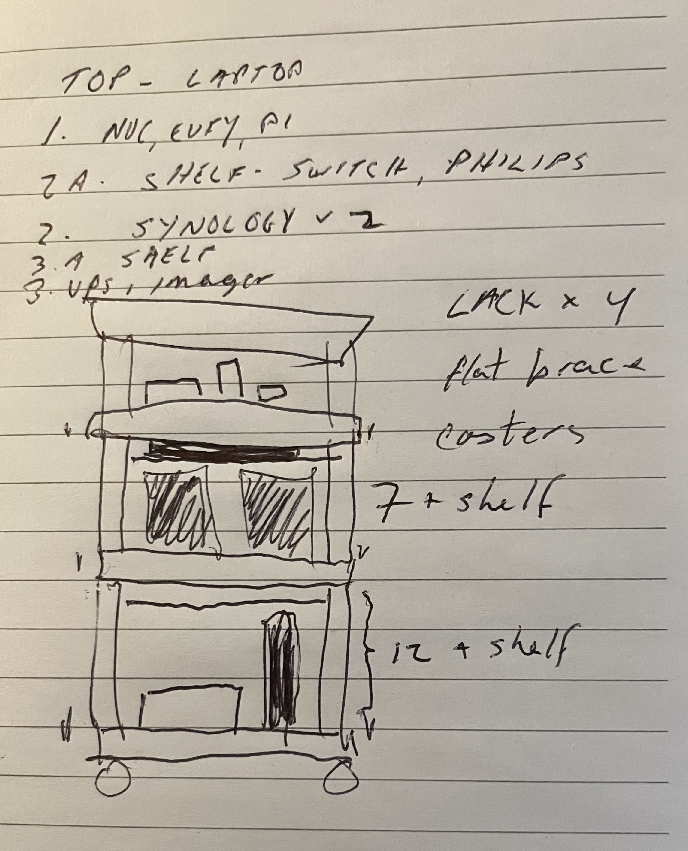 TOP - LAPTOP
1. NUC, EUFY, PI
2A. SHELF - SWITCH, PHILIPS
2. SYNOLOGY v 2
3. A SHELF
3. UPS, imager
LACK x 4
flat brace
casters
7 + shelf
12 + shelf